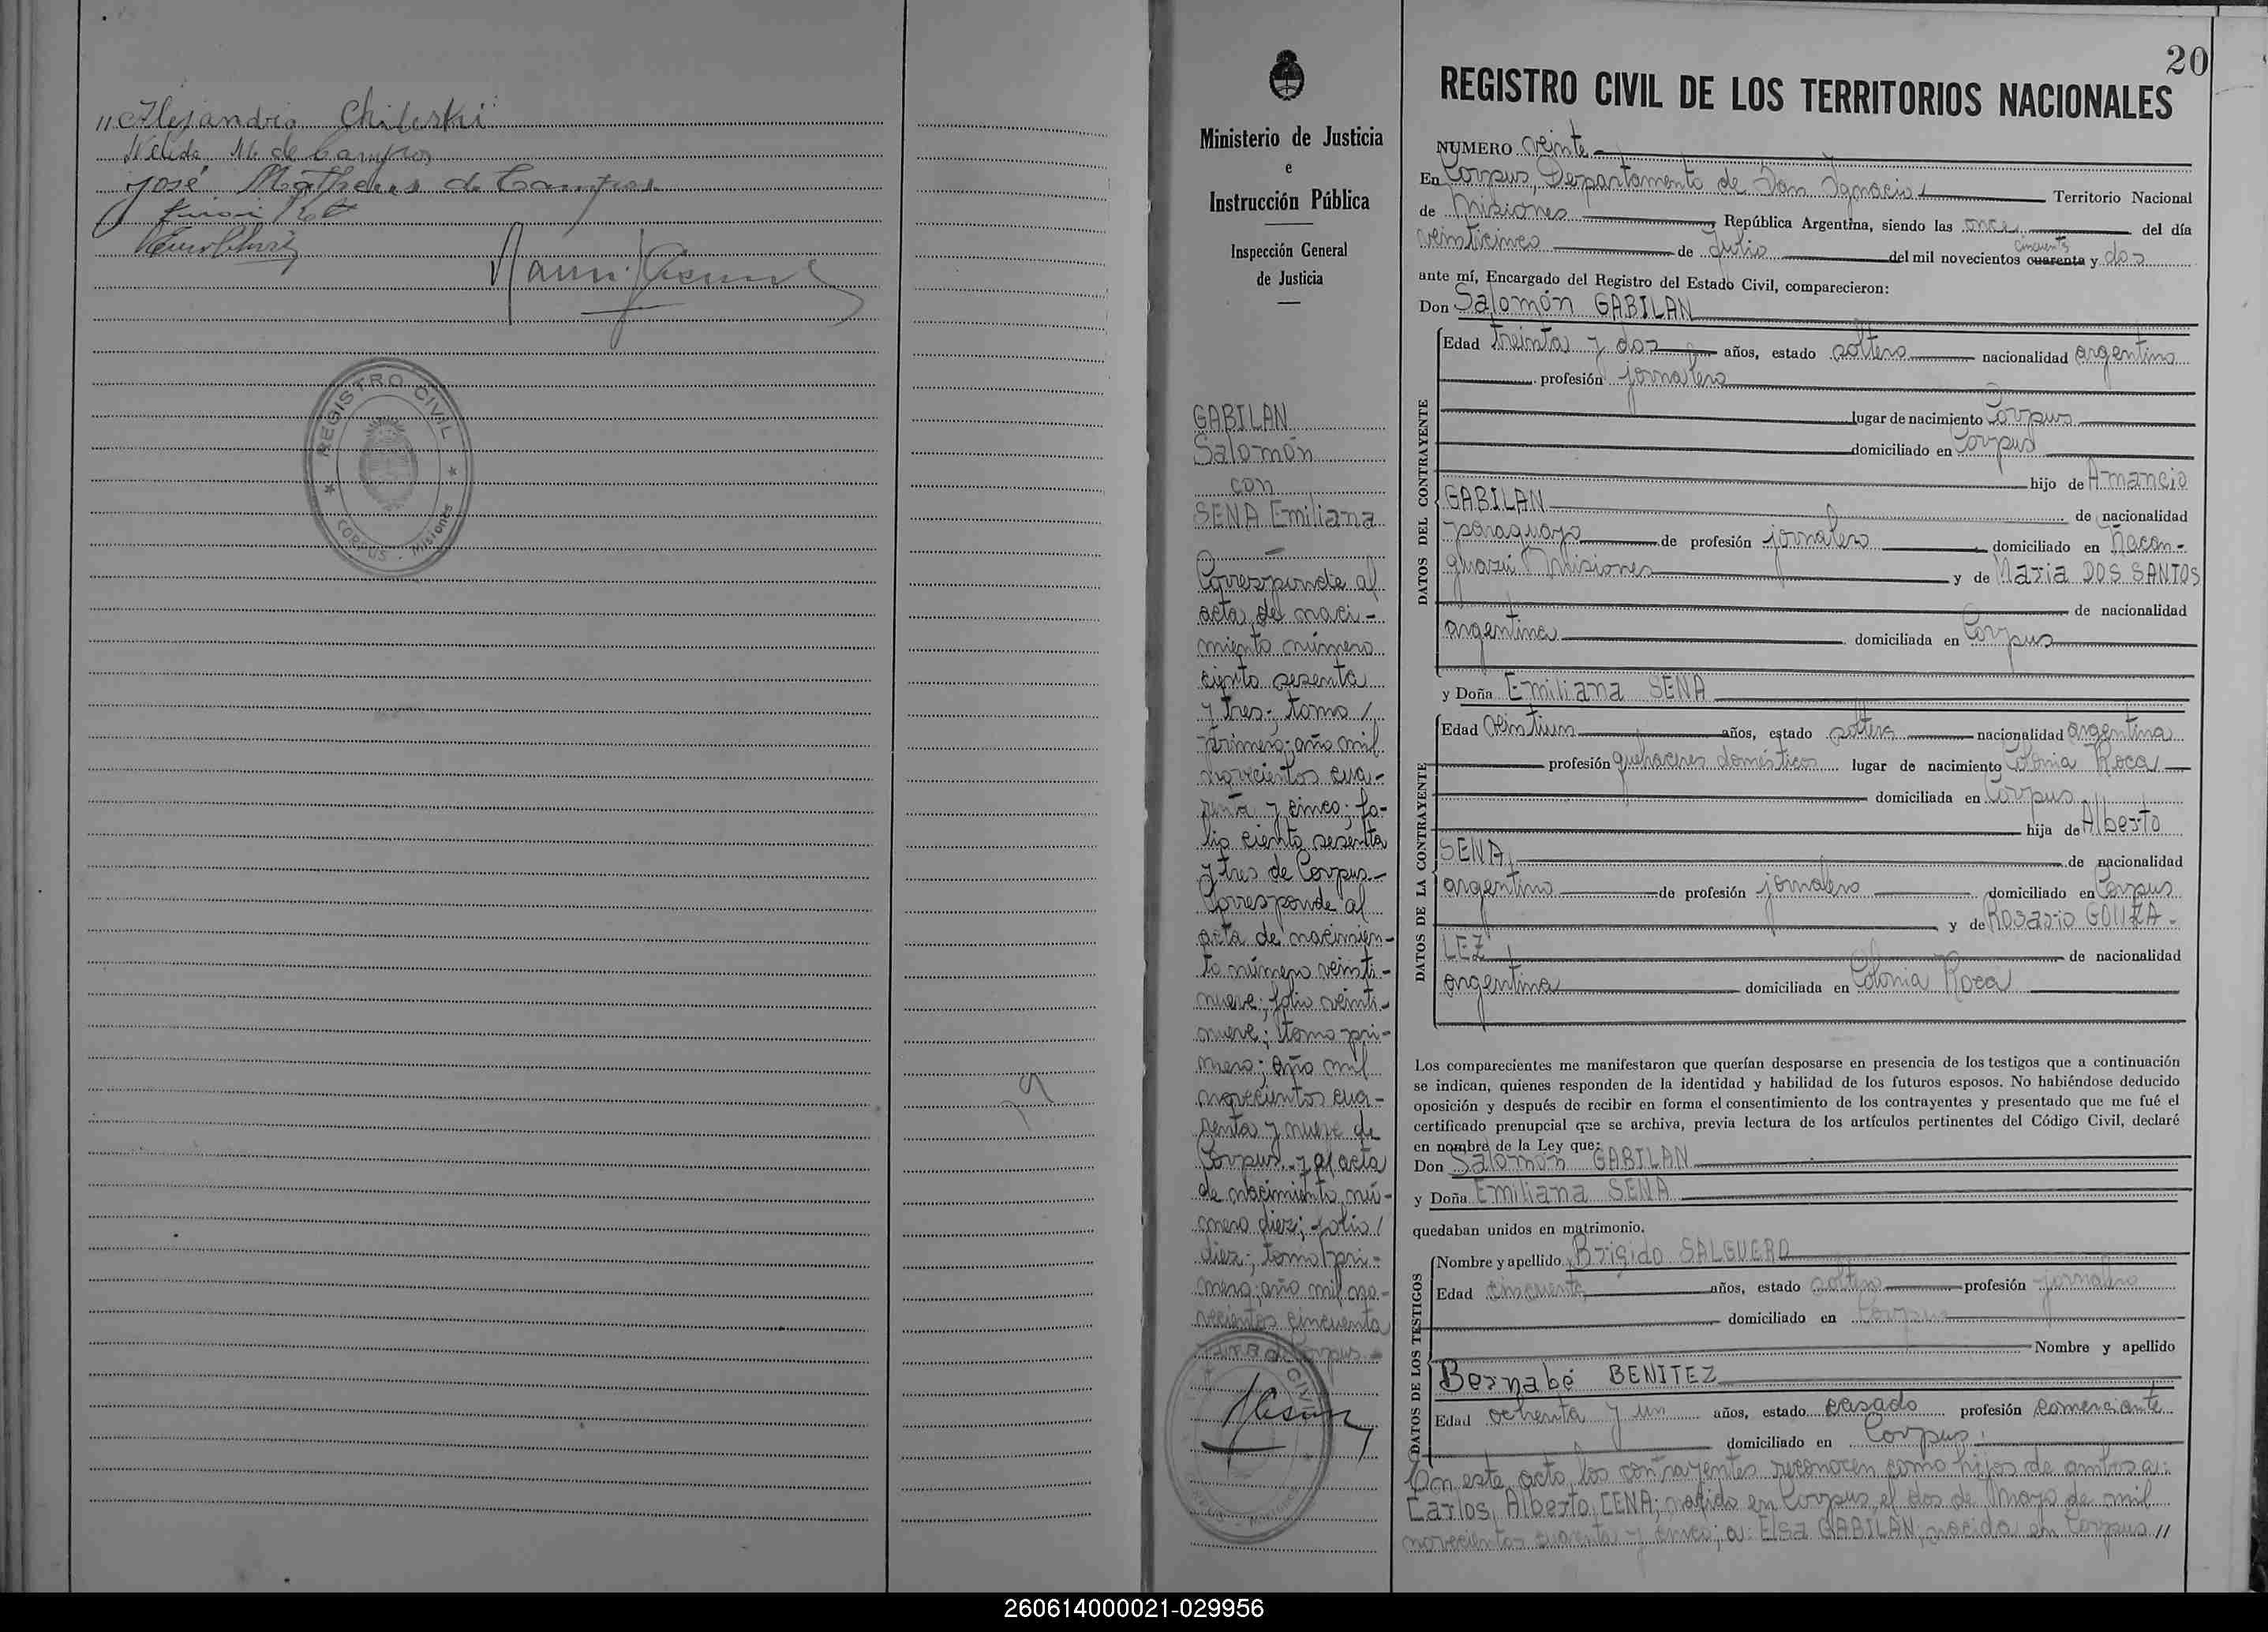 "Alejandro Chileski
Nelida M. de Campos
José Matheus de Campos
REGISTRO CIVIL
CORPUS - Misiones
79
Ministerio de Justicia
e
Instrucción Pública
Inspección General
de Justicia
GABILAN
Salomón
con
SENA Emiliana
Corresponde al
acta de naci-
miento número
ciento sesenta
y tres; tomo /
primero; año mil
novecientos cua-
renta y cinco; fo-
lio ciento sesenta
y tres de Corpus.-
Corresponde al
acta de nacimien-
to número veinti-
nueve; folio veinti-
nueve; tomo pri-
mero; año mil
novecientos cua-
renta y nueve de
Corpus y al acta
de nacimiento nú-
mero diez; folio /
diez; tomo pri-
mero; año mil no-
vecientos cincuenta
y uno de Corpus.-
20
REGISTRO CIVIL DE LOS TERRITORIOS NACIONALES
NUMERO veinte
En Corpus, Departamento de San Ignacio, Territorio Nacional
de Misiones República Argentina, siendo las once del día
veinticinco de Julio del mil novecientos cuarenta cincuenta y dos
ante mí, Encargado del Registro del Estado Civil, comparecieron:
Don Salomón GABILAN
DATOS DEL CONTRAYENTE
Edad treinta y dos años, estado soltero nacionalidad argentino
profesión jornalero
lugar de nacimiento Corpus
domiciliado en Corpus
hijo de Amancio
GABILAN de nacionalidad
paraguayo de profesión jornalero domiciliado en Ñacan-
guazú Misiones y de Maria DOS SANTOS
de nacionalidad
argentina domiciliada en Corpus
y Doña Emiliana SENA
DATOS DE LA CONTRAYENTE
Edad veintiun años, estado soltera nacionalidad argentina
profesión quehaceres domésticos lugar de nacimiento Colonia Roca
domiciliada en Corpus
hija de Alberto
SENA de nacionalidad
argentino de profesión jornalero domiciliado en Corpus
y de Rosario GONZA-
LEZ de nacionalidad
argentina domiciliada en Colonia Roca
Los comparecientes me manifestaron que querían desposarse en presencia de los testigos que a continuación
se indican, quienes responden de la identidad y habilidad de los futuros esposos. No habiéndose deducido
oposición y después de recibir en forma el consentimiento de los contrayentes y presentado que me fué el
certificado prenupcial que se archiva, previa lectura de los artículos pertinentes del Código Civil, declaré
en nombre de la Ley que:
Don Salomón GABILAN
y Doña Emiliana SENA
quedaban unidos en matrimonio.
DATOS DE LOS TESTIGOS
Nombre y apellido Brígido SALGUERO
Edad cincuenta años, estado soltero profesión jornalero
domiciliado en Corpus
Nombre y apellido
Bernabé BENITEZ
Edad ochenta y un años, estado casado profesión comerciante
domiciliado en Corpus.
En este acto los contrayentes reconocen como hijos de ambos a:
Carlos Alberto CENA; nacido en Corpus el dos de Mayo de mil
novecientos cuarenta y cinco; a: Elsa GABILAN, nacida en Corpus //
260614000021-029956